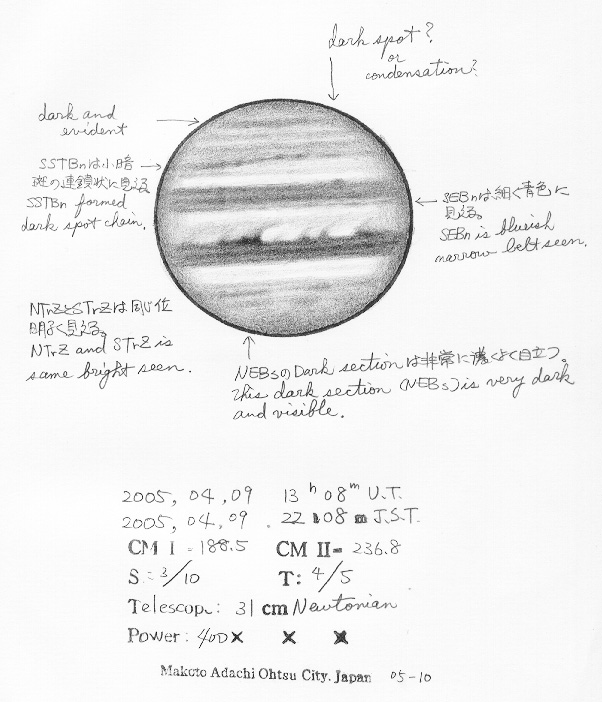 dark spot?
or
condensation?
dark and
evident
SSTBnは小暗
斑の連鎖状に見える
SSTBn formed
dark spot chain.
SEBnは細く青色に
見える。
SEBn is blueish
narrow belt seen.
NTrZとSTrZは同じ位
明るく見える。
NTrZ and STrZ is
same bright seen.
NEBsのDark section は非常に濃くよく目立つ。
This dark section (NEBs) is very dark
and visible.
2005, 04, 09 13h 08m U.T.
2005, 04, 09 . 22h 08m J.S.T.
CM I = 188.5 CM II= 236.8
S: 3/10 T: 4/5
Telescope: 31 cm Newtonian
Power: 400× × ×
Makoto Adachi Ohtsu City. Japan 05-10